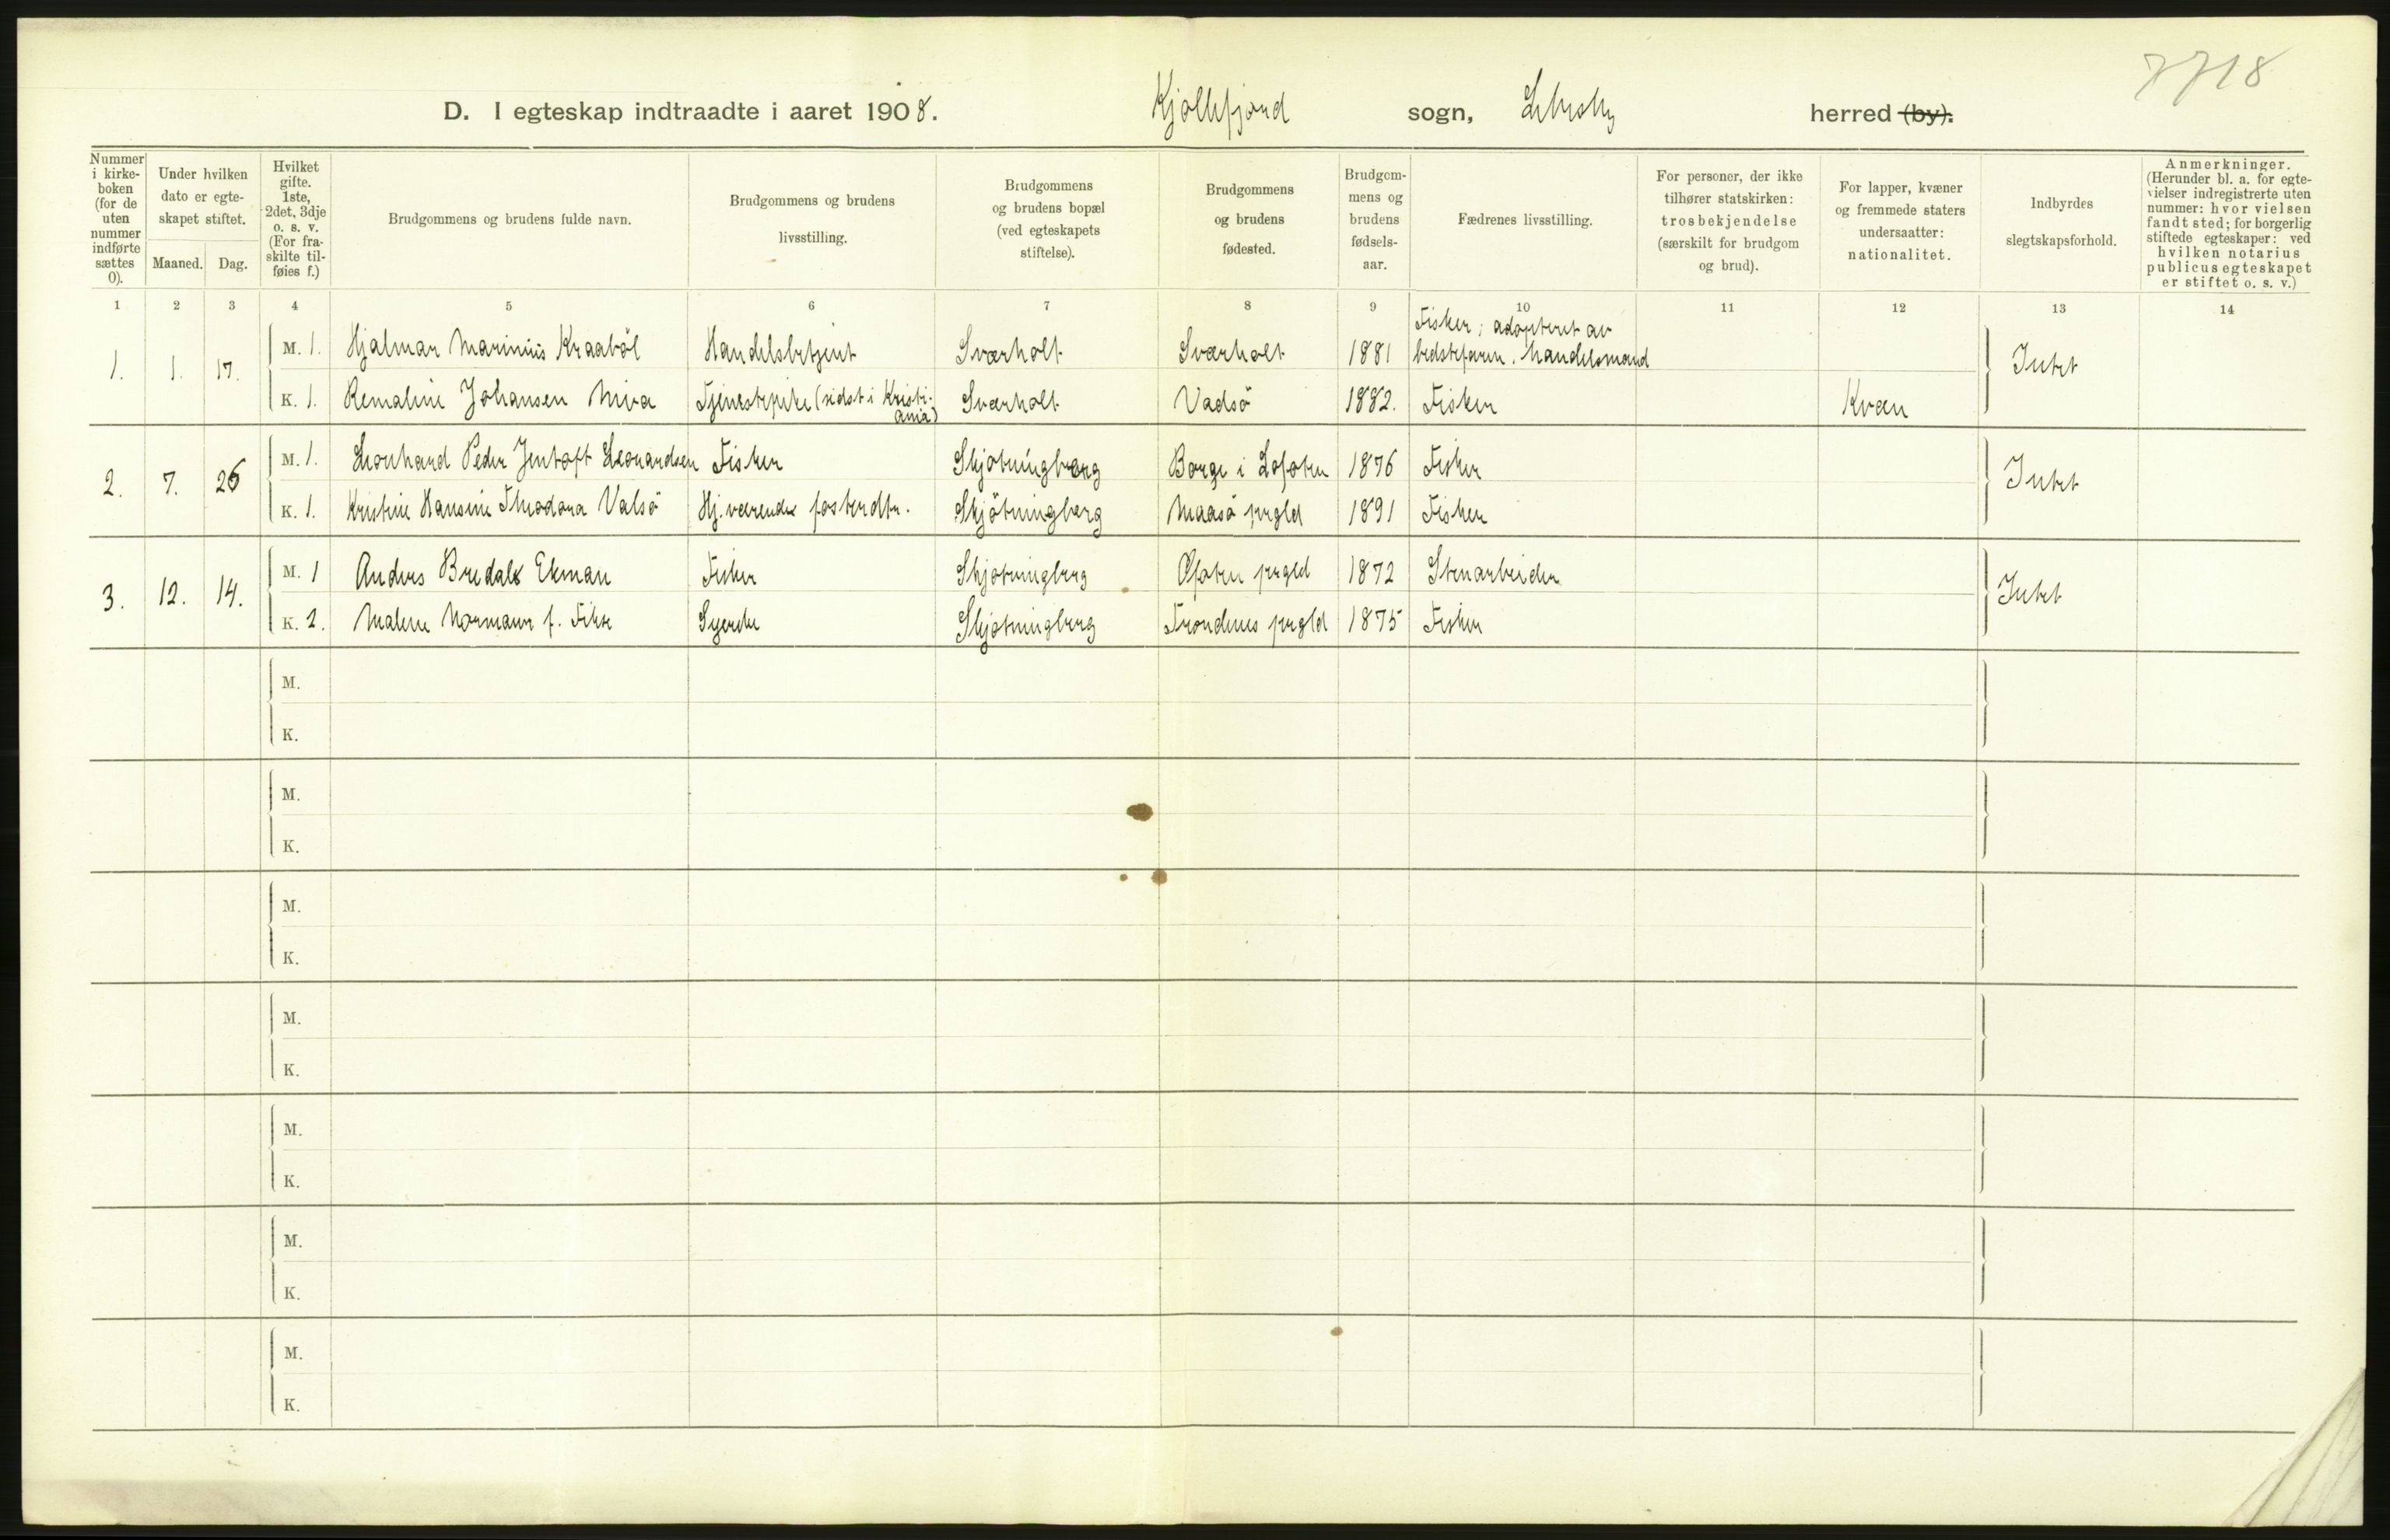 7718
D. I egteskap indtraadte i aaret 1908. Kjøllefjord sogn, Lebesby herred (by).
Nummer i kirke- boken (for de uten nummer indførte sættes 0).
Under hvilken dato er egte- skapet stiftet.
Maaned. Dag.
Hvilket gifte. 1ste, 2det, 3dje o. s. v. (For fra- skilte til- føies f.)
Brudgommens og brudens fulde navn.
Brudgommens og brudens livsstilling.
Brudgommens og brudens bopæl (ved egteskapets stiftelse).
Brudgommens og brudens fødested.
Brudgom- mens og brudens fødsels- aar.
Fædrenes livsstilling.
For personer, der ikke tilhører statskirken: trosbekjendelse (særskilt for brudgom og brud).
For lapper, kvæner og fremmede staters undersaatter: nationalitet.
Indbyrdes slegtskapsforhold.
Anmerkninger. (Herunder bl. a. for egte- vielser indregistrerte uten nummer: hvor vielsen fandt sted; for borgerlig stiftede egteskaper: ved hvilken notarius publicus egteskapet er stiftet o. s. v.)
1 2 3 4 5 6 7 8 9 10 11 12 13 14
1. 1. 17. M. 1. Hjalmar Marinius Kraabøl Handelsbetjent Sværholt Sværholt 1881 Fisker; adopteret av bedstefaren. Handelsmand Intet
K. 1. Remaline Johansen Niva Tjenestepike (sidst i Kristi- ania) Sværholt Vadsö 1882. Fisker Kvæn
2. 7. 26 M. 1. Leonhard Peder Jentoft Leonardsen Fisker Skjötningberg Borge i Lofoten 1876 Fisker Intet
K. 1. Kristine Hansine Theodora Valsö Hj. værende fosterdtr. Skjötningberg Maasö prgld 1891 Fisker
3. 12. 14. M. 1 Anders Bredals Ekman Fisker Skjøtningberg Ofoten prgld 1872 Stenarbeider Intet
K. 2. Malene Normann f. Fikse Syerske Skjøtningberg Trondenes prgld 1875 Fisker
M.
K.
M.
K.
M.
K.
M.
K.
M.
K.
M.
K.
M.
K.